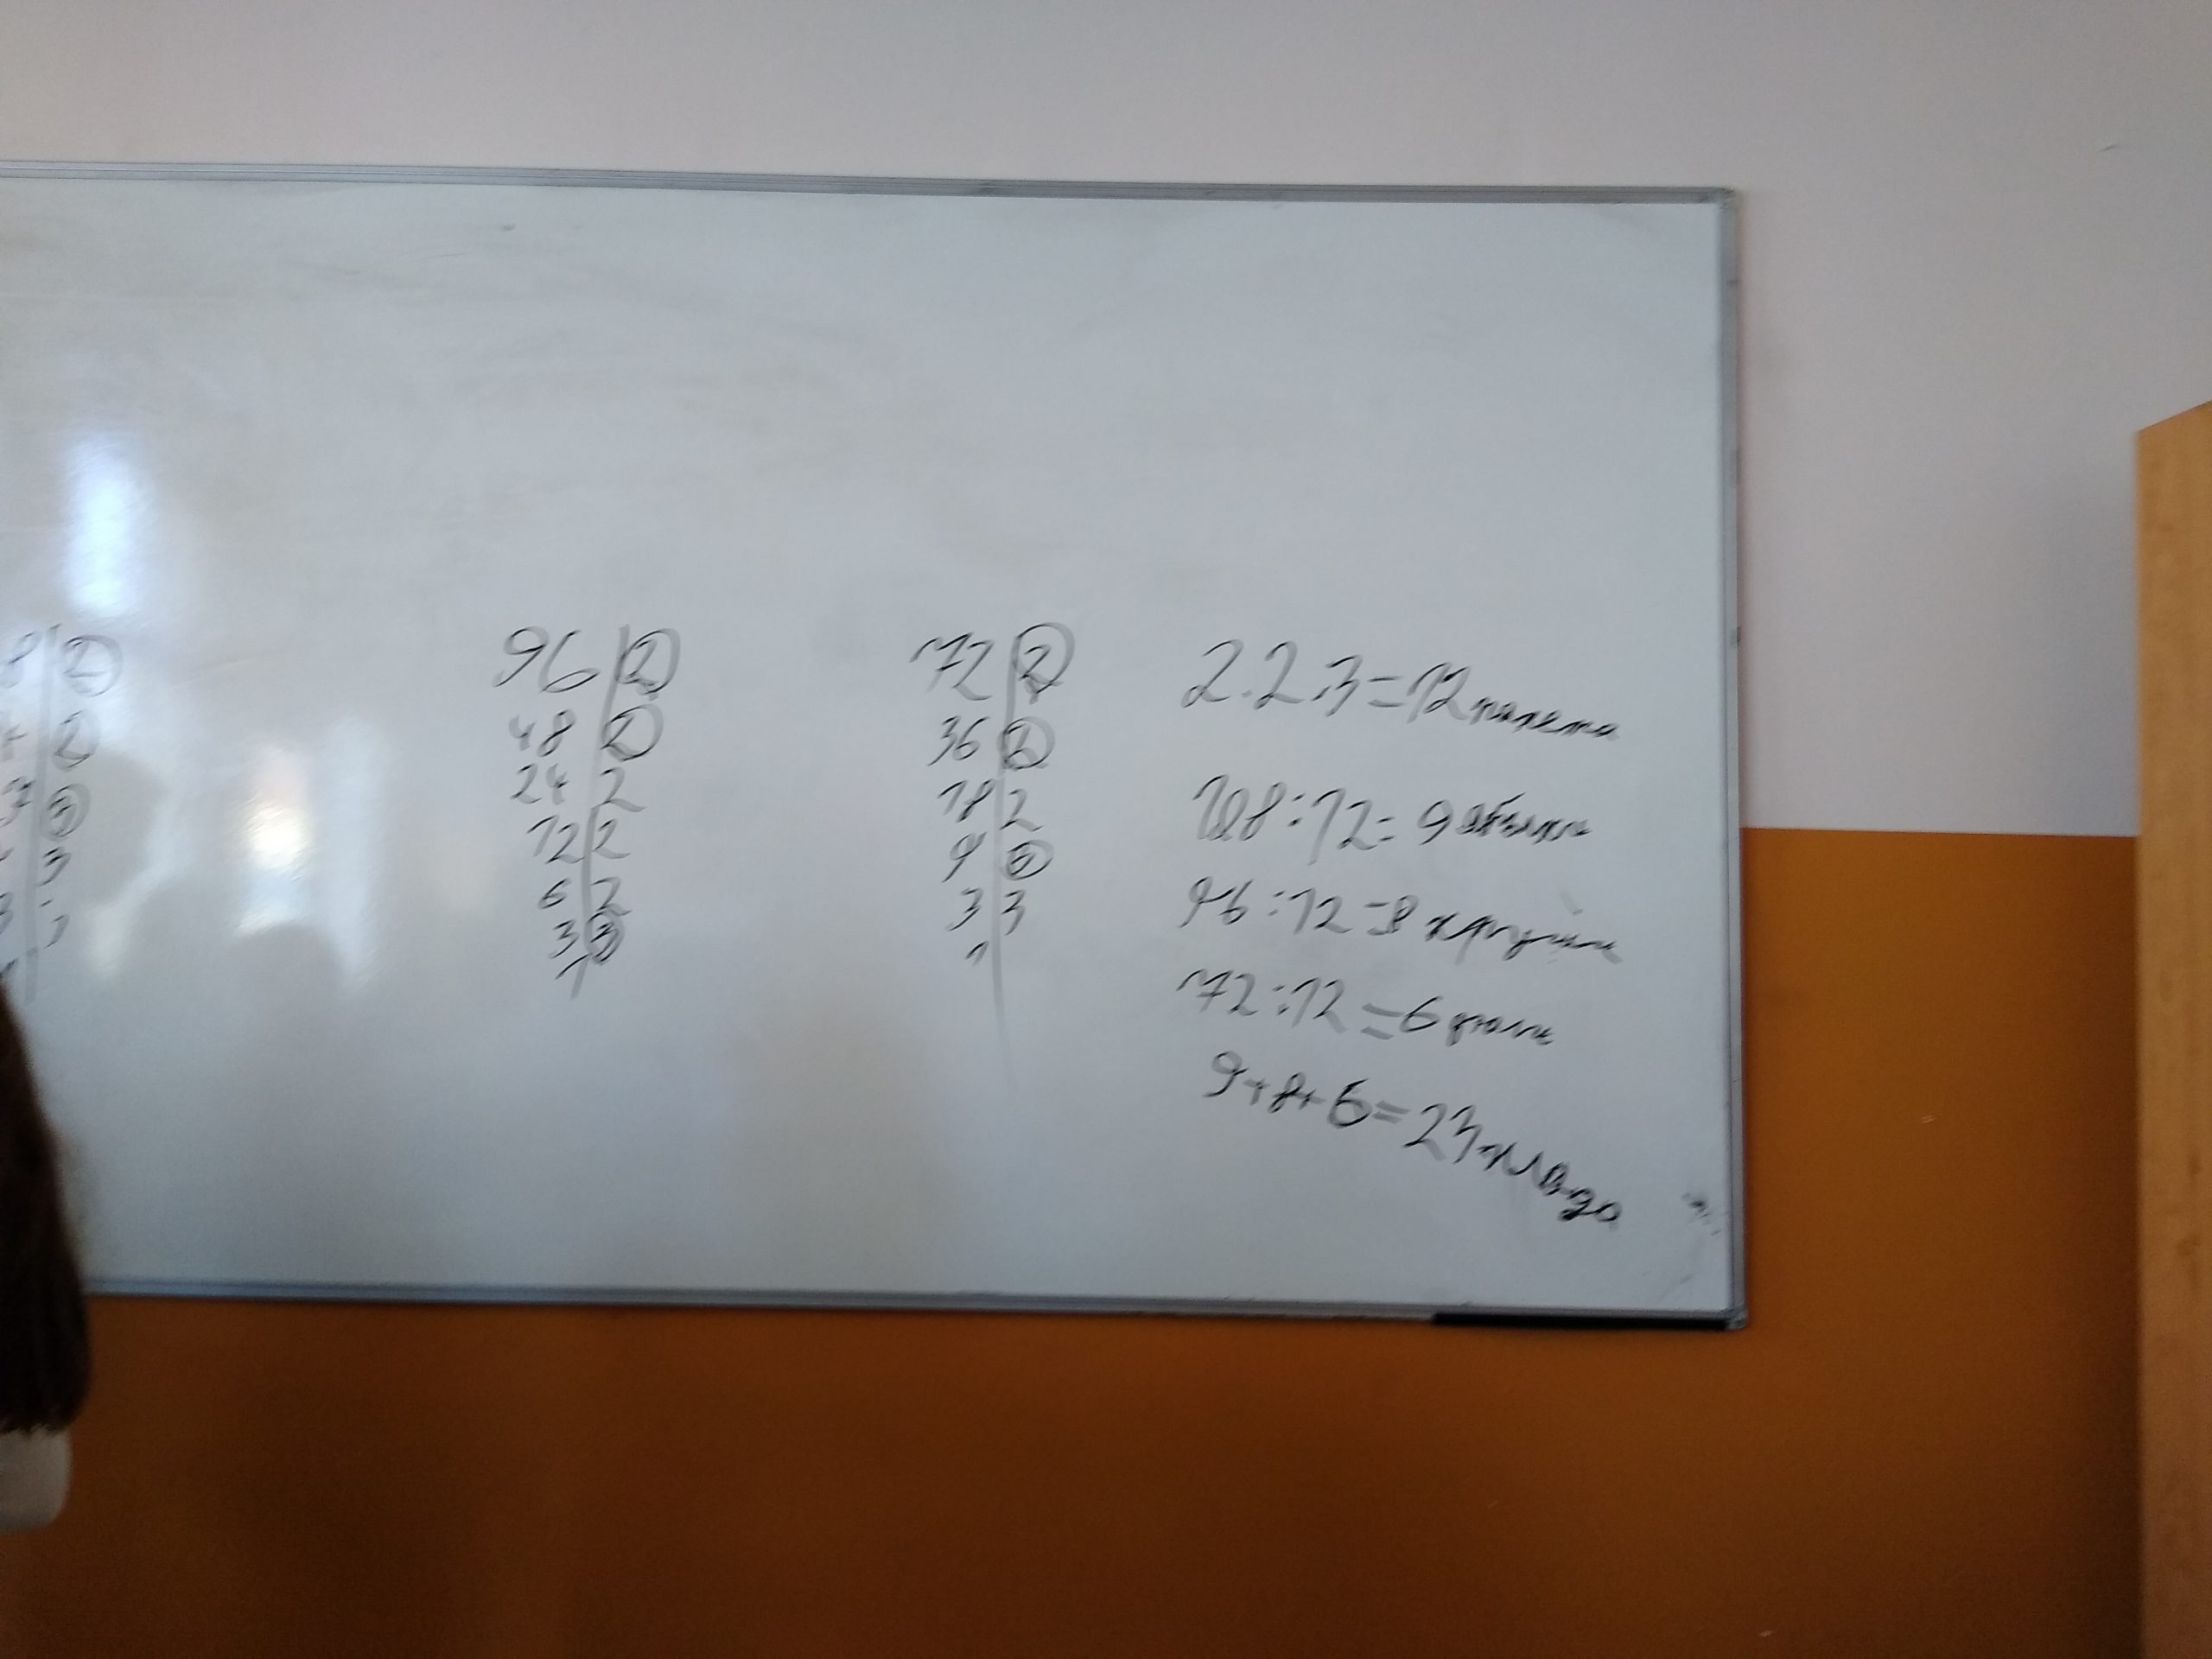 8 | 2
2
3
3 3
96 | 2
48 | 2
24 | 2
12 | 2
6 | 2
3 | 3
1
72 | 2
36 | 2
18 | 2
9 | 3
3 | 3
1
2.2.3=12 пакета
108:12=9 ябълки
96:12=8 круши
72:12=6
9+8+6=23 плода